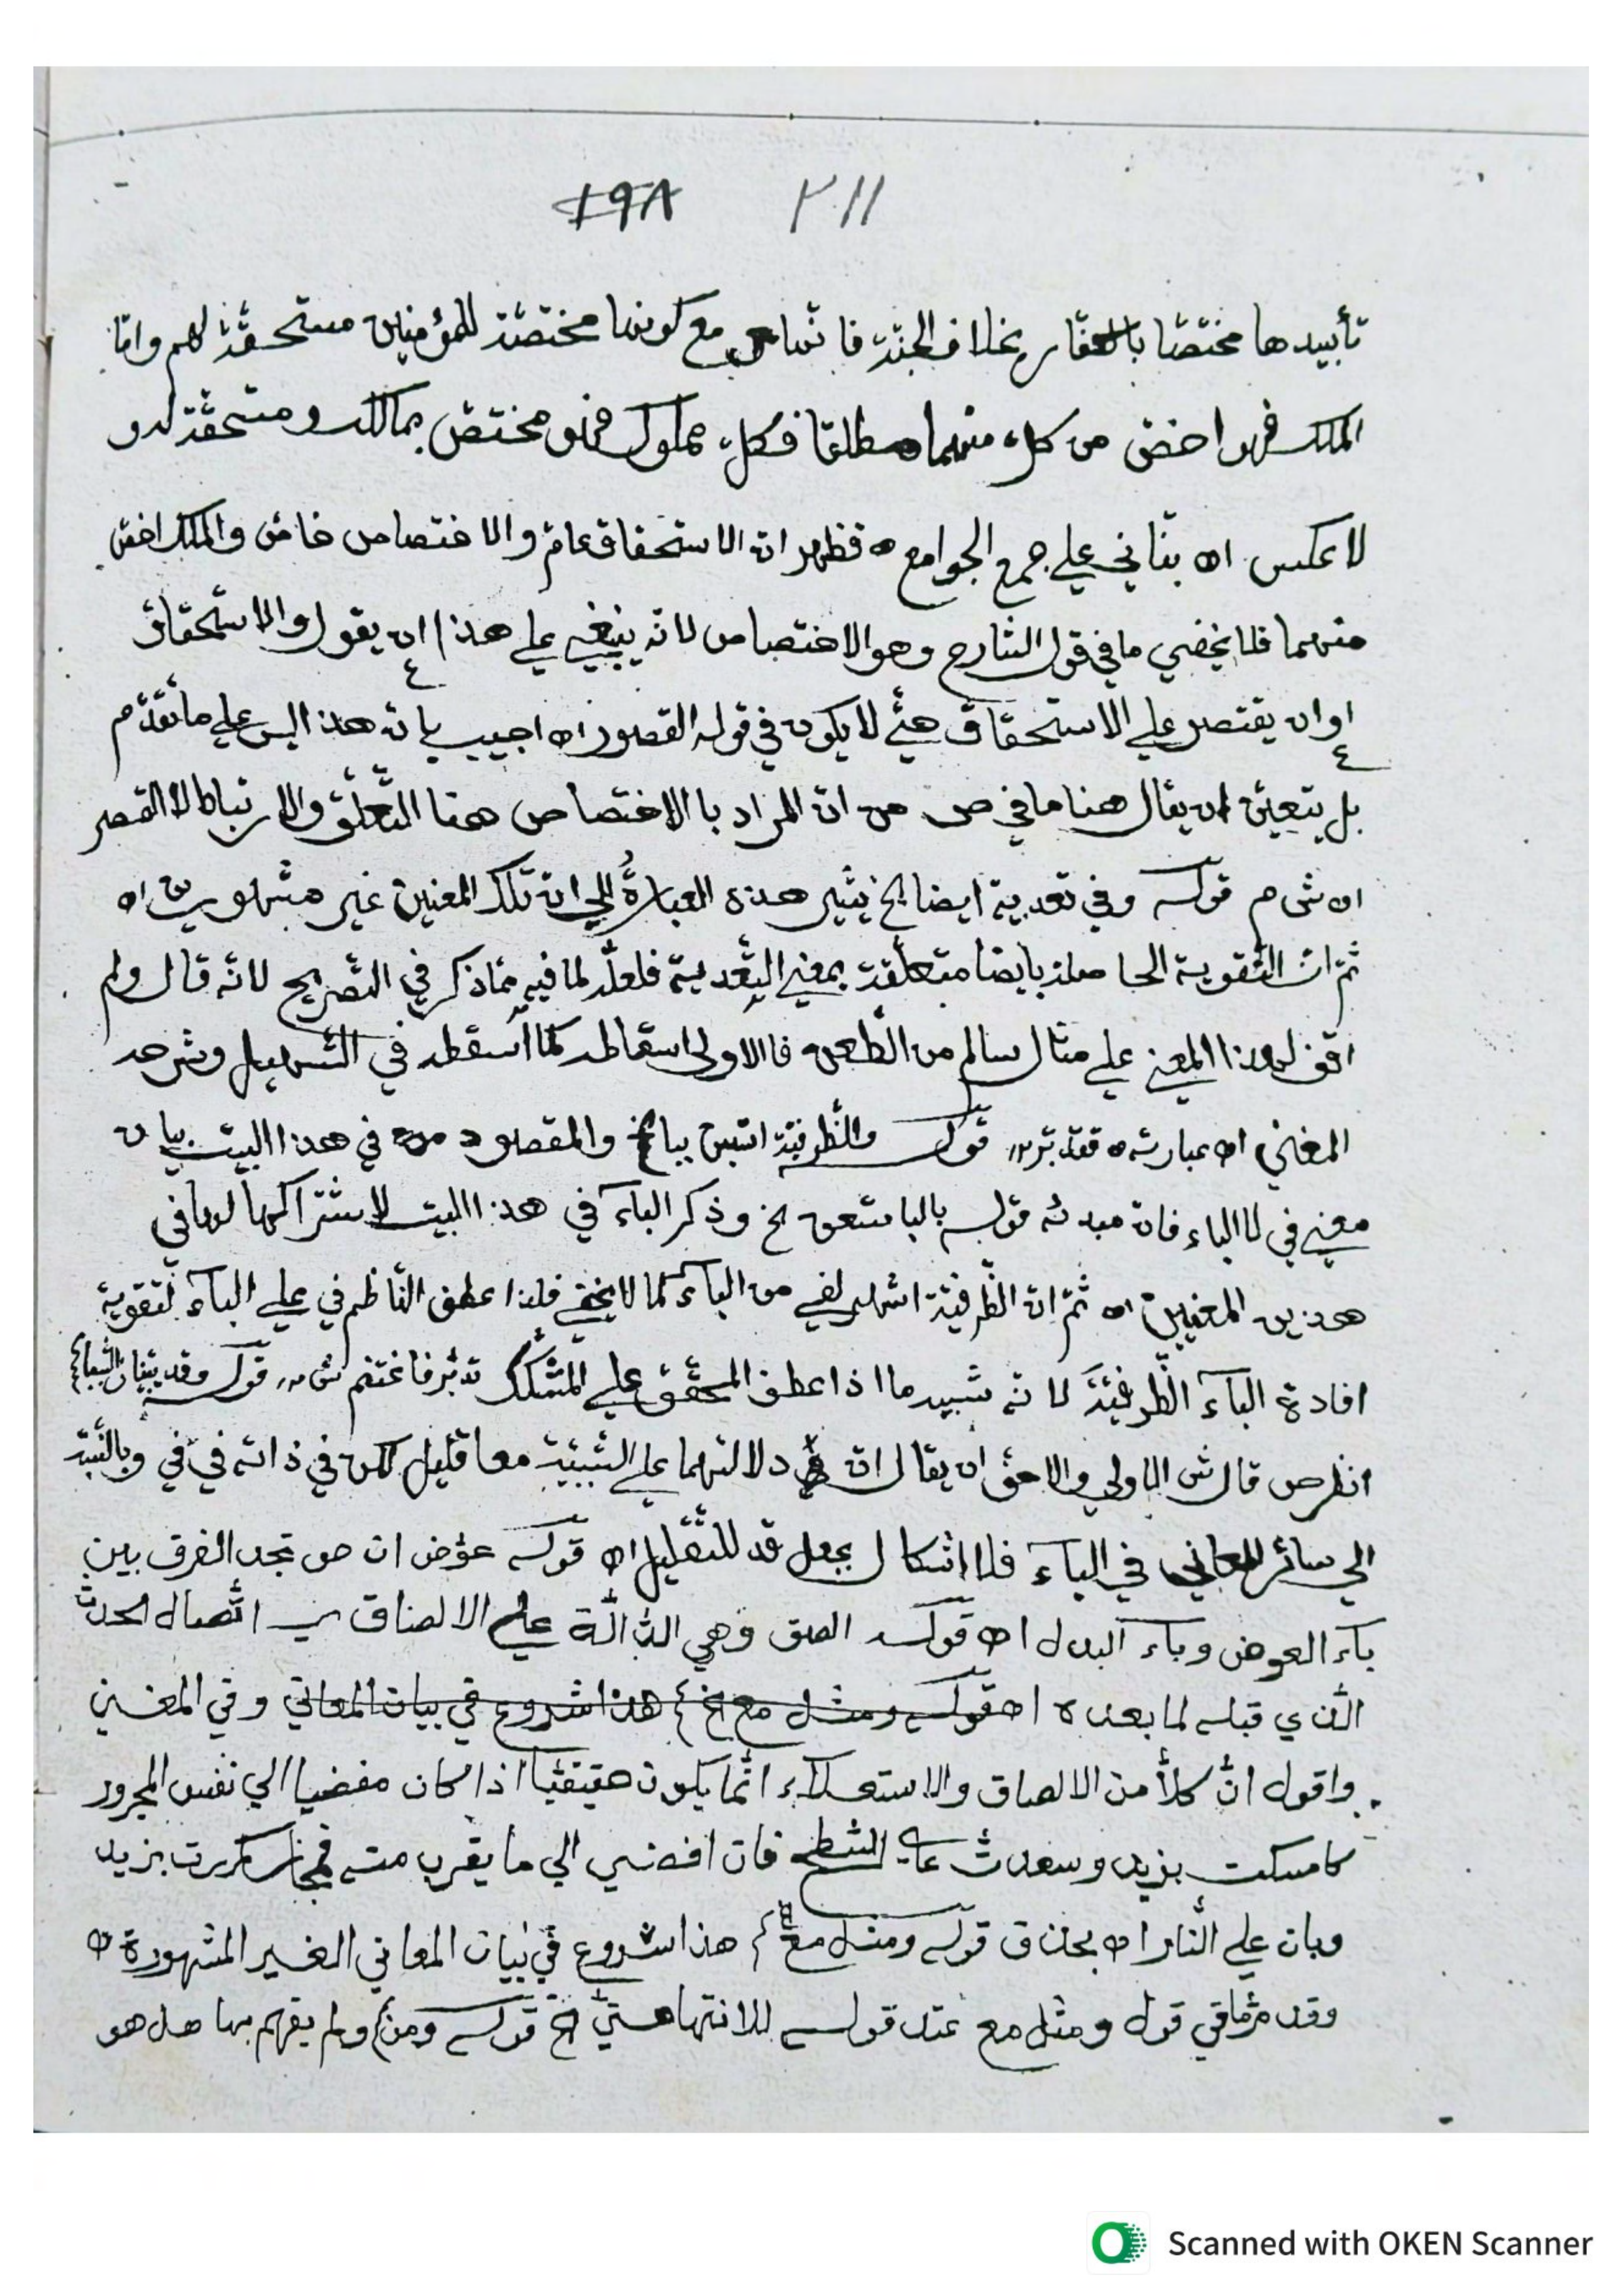 ٢١١ ١٩٨
تأبيدها مختصّا بالكفار بخلاف الجنّة فانّها مع كونها مختصّة للمؤمنين مستحقّة لهم وامّا
الملك فهو اخصّ من كلّ منهما مطلقا فكلّ مملوك فهو مختصّ بمالكه ومستحقّة له و
لا عكس اه بنّاني علي جمع الجوامع ه فظهر انّ الاستحقاق عامّ والاختصاص خاصّ والملك اخصّ
منهما فلا يخفي ما في قول الشارح وهو الاختصاص لانّه ينبغي علي هذا ان يقول والاستحقاق
او ان يقتصر علي الاستحقاق حتّي لا يكون في قوله القصور اه اجيب بانّ هذا ليس علي ما تقدّم
بل يتعيّن ان يقال هنا ما في ص من انّ المراد بالاختصاص هنا التّعلّق والارتباط لا القصر
اه ش م قوله وفي تعدية ايضا الخ يشير هذه العبارة الي انّ تلك المعنين غير مشهورين اه
ثمّ انّ التّقوية الحاصلة بايضا متعلّقة بمعني التّعدية فلعلّه لما فيه ممّا ذكر في التّصريح لانّه قال ولم
اقف لهذا المعني علي مثال سالم من الطّعن ه فالاولي اسقاطه كما اسقطه في التّسهيل وشرحه
المغني اه عبارته ه فتدبّر م ر قوله والظّرفيّة استبن ببا الخ والمقصود منه في هذا البيت بيان
معني في لا الباء فانّ مبدئه قوله بالبا استعن الخ وذكر الباء في هذا البيت لاشتراكها لها في
هذين المعنيين اه ثمّ انّ الظّرفيّة اشهر لفي من الباء كما لا يخفي فلذا عطف النّاظم في علي الباء لتقوية
افادة الباء الظّرفيّة لانّه شبيه ما اذا عطف المحقّق علي المشكّك تدبّر فاغتنم ش م ر قوله وقد يبيّنان السّببا الخ
انظر ص قال ش الاولي والاحقّ ان يقال انّ دلالتهما علي السّببيّة معا قليل لكن في ذاته في في وبالنّسبة
الي سائر المعاني في الباء فلا اشكال بجعل قد للتّقليل اه قوله عوّض انظر ص تجد الفرق بين
باء العوض وباء البدل اه قوله الصق وهي الدّالّة علي الالصاق اتّصال الحدث
الّذي قبله لما بعده اه قوله ومثل مع الخ هذا شروع في بيان المعاني وفي المغني
واقول انّ كلّا من الالصاق والاستعلاء انّما يكون حقيقيّا اذا كان مفضيا الي نفس المجرور
كامسكت بزيد وسعدت علي السّطح فان افضي الي ما يقرب منه فمجاز كمررت بزيد
وبات علي النّار اه بحذف قوله ومثل مع الخ هذا شروع في بيان المعاني الغير المشهورة ه
وقد مرّ ما في قول ومثل مع عند قوله للانتها حتّي الخ قوله ومن الخ ولم يفهم بها هل هو
Scanned with OKEN Scanner